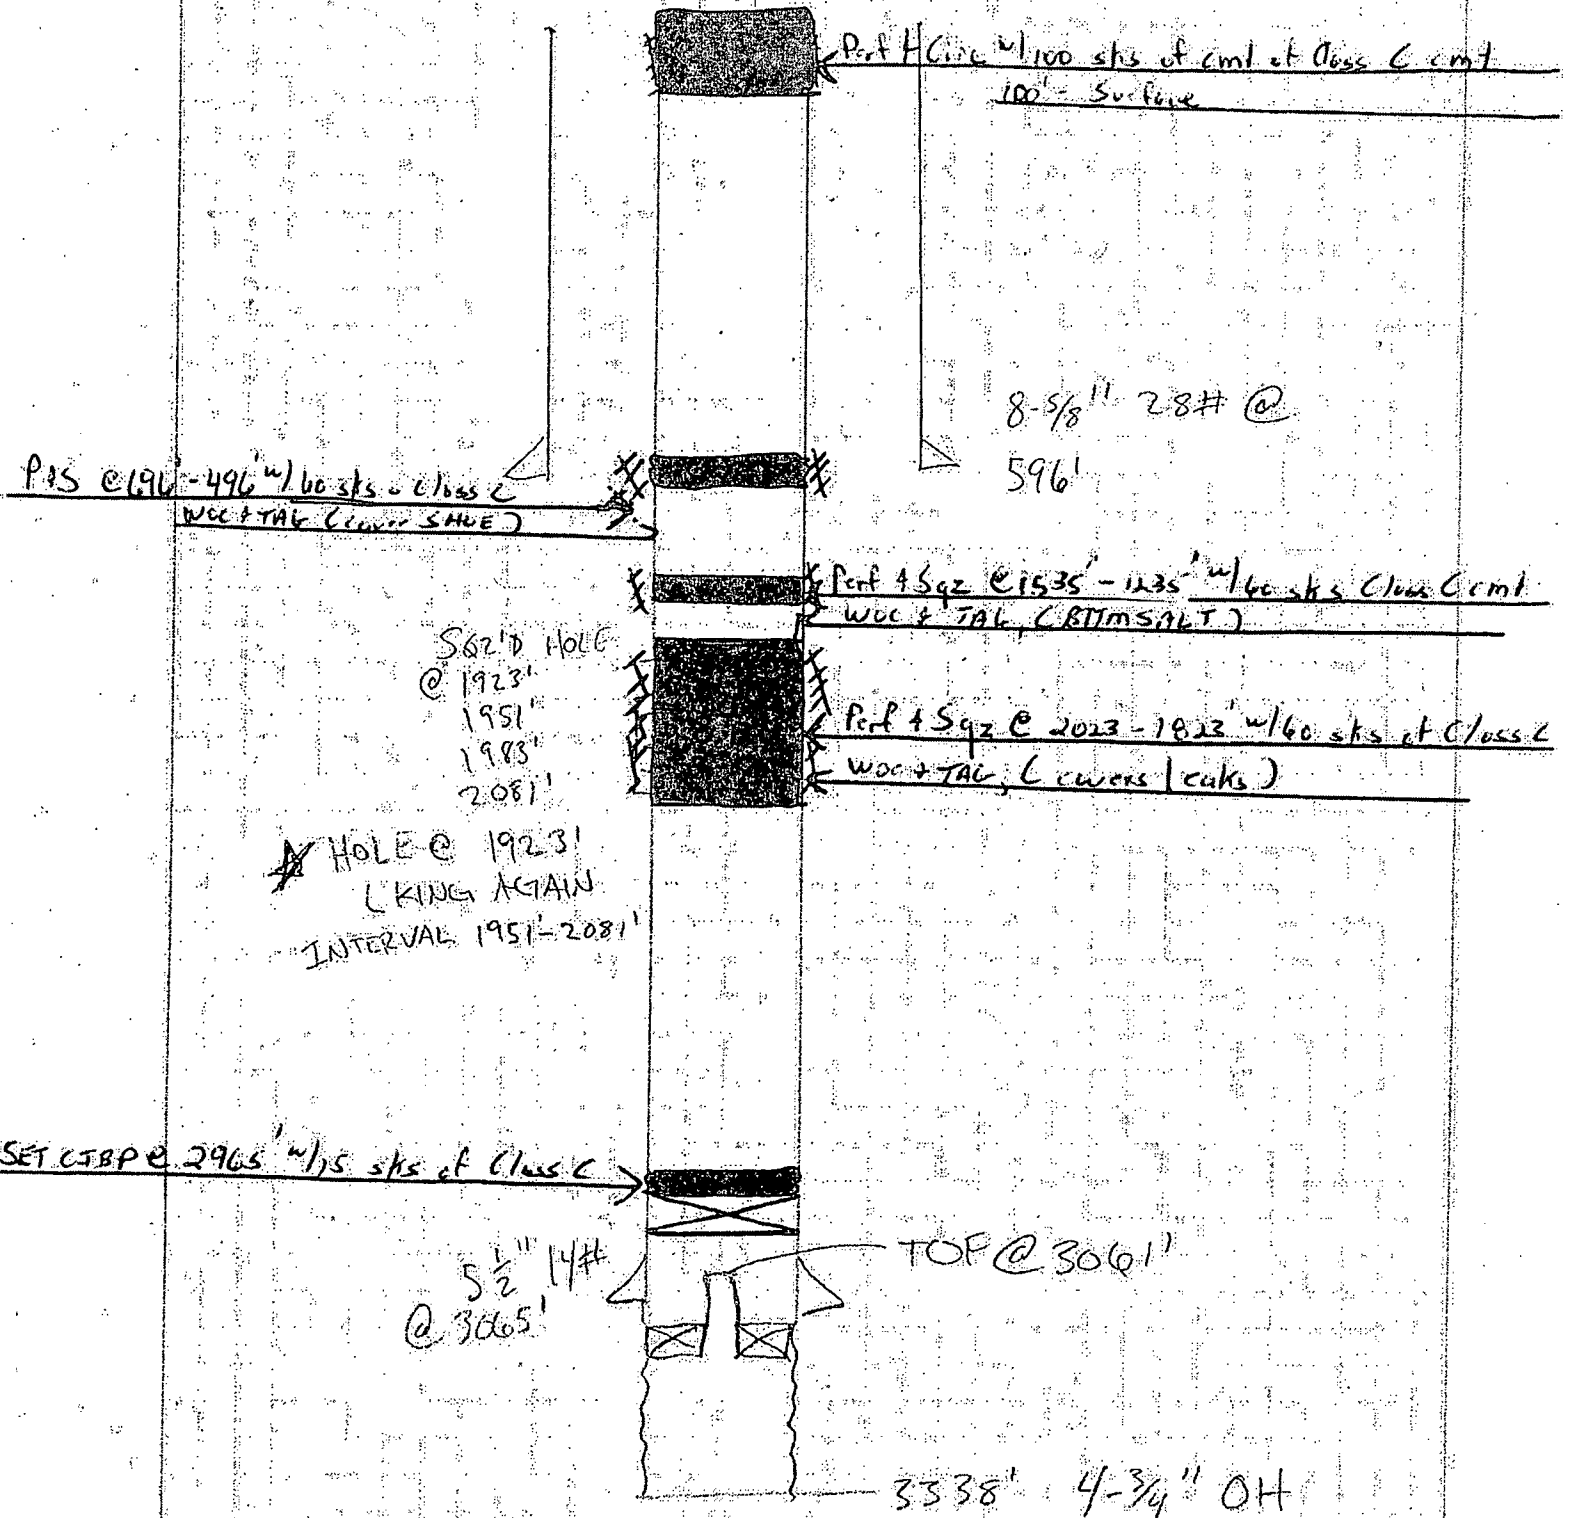 Perf & Circ w/100 sks of cmt of Class C cmt
100' - Surface
8-5/8" 28# @
596'
P&S @ 696'-496' w/60 sks Class C
WOC & TAG (cover SHOE)
Perf & Sqz @ 1535'-1235' w/60 sks Class C cmt
WOC & TAG, (BTTM SALT)
SQZ'D HOLE
@ 1923'
1951'
1983'
2081'
Perf & Sqz @ 2023-1823' w/60 sks of Class C
WOC & TAG, (covers leaks)
HOLE @ 1923'
LKING AGAIN
INTERVAL 1951'-2081'
SET CIBP @ 2965' w/15 sks of Class C
5 1/2" 14#
@ 3065'
TOF @ 3061'
3338' 4-3/4" OH